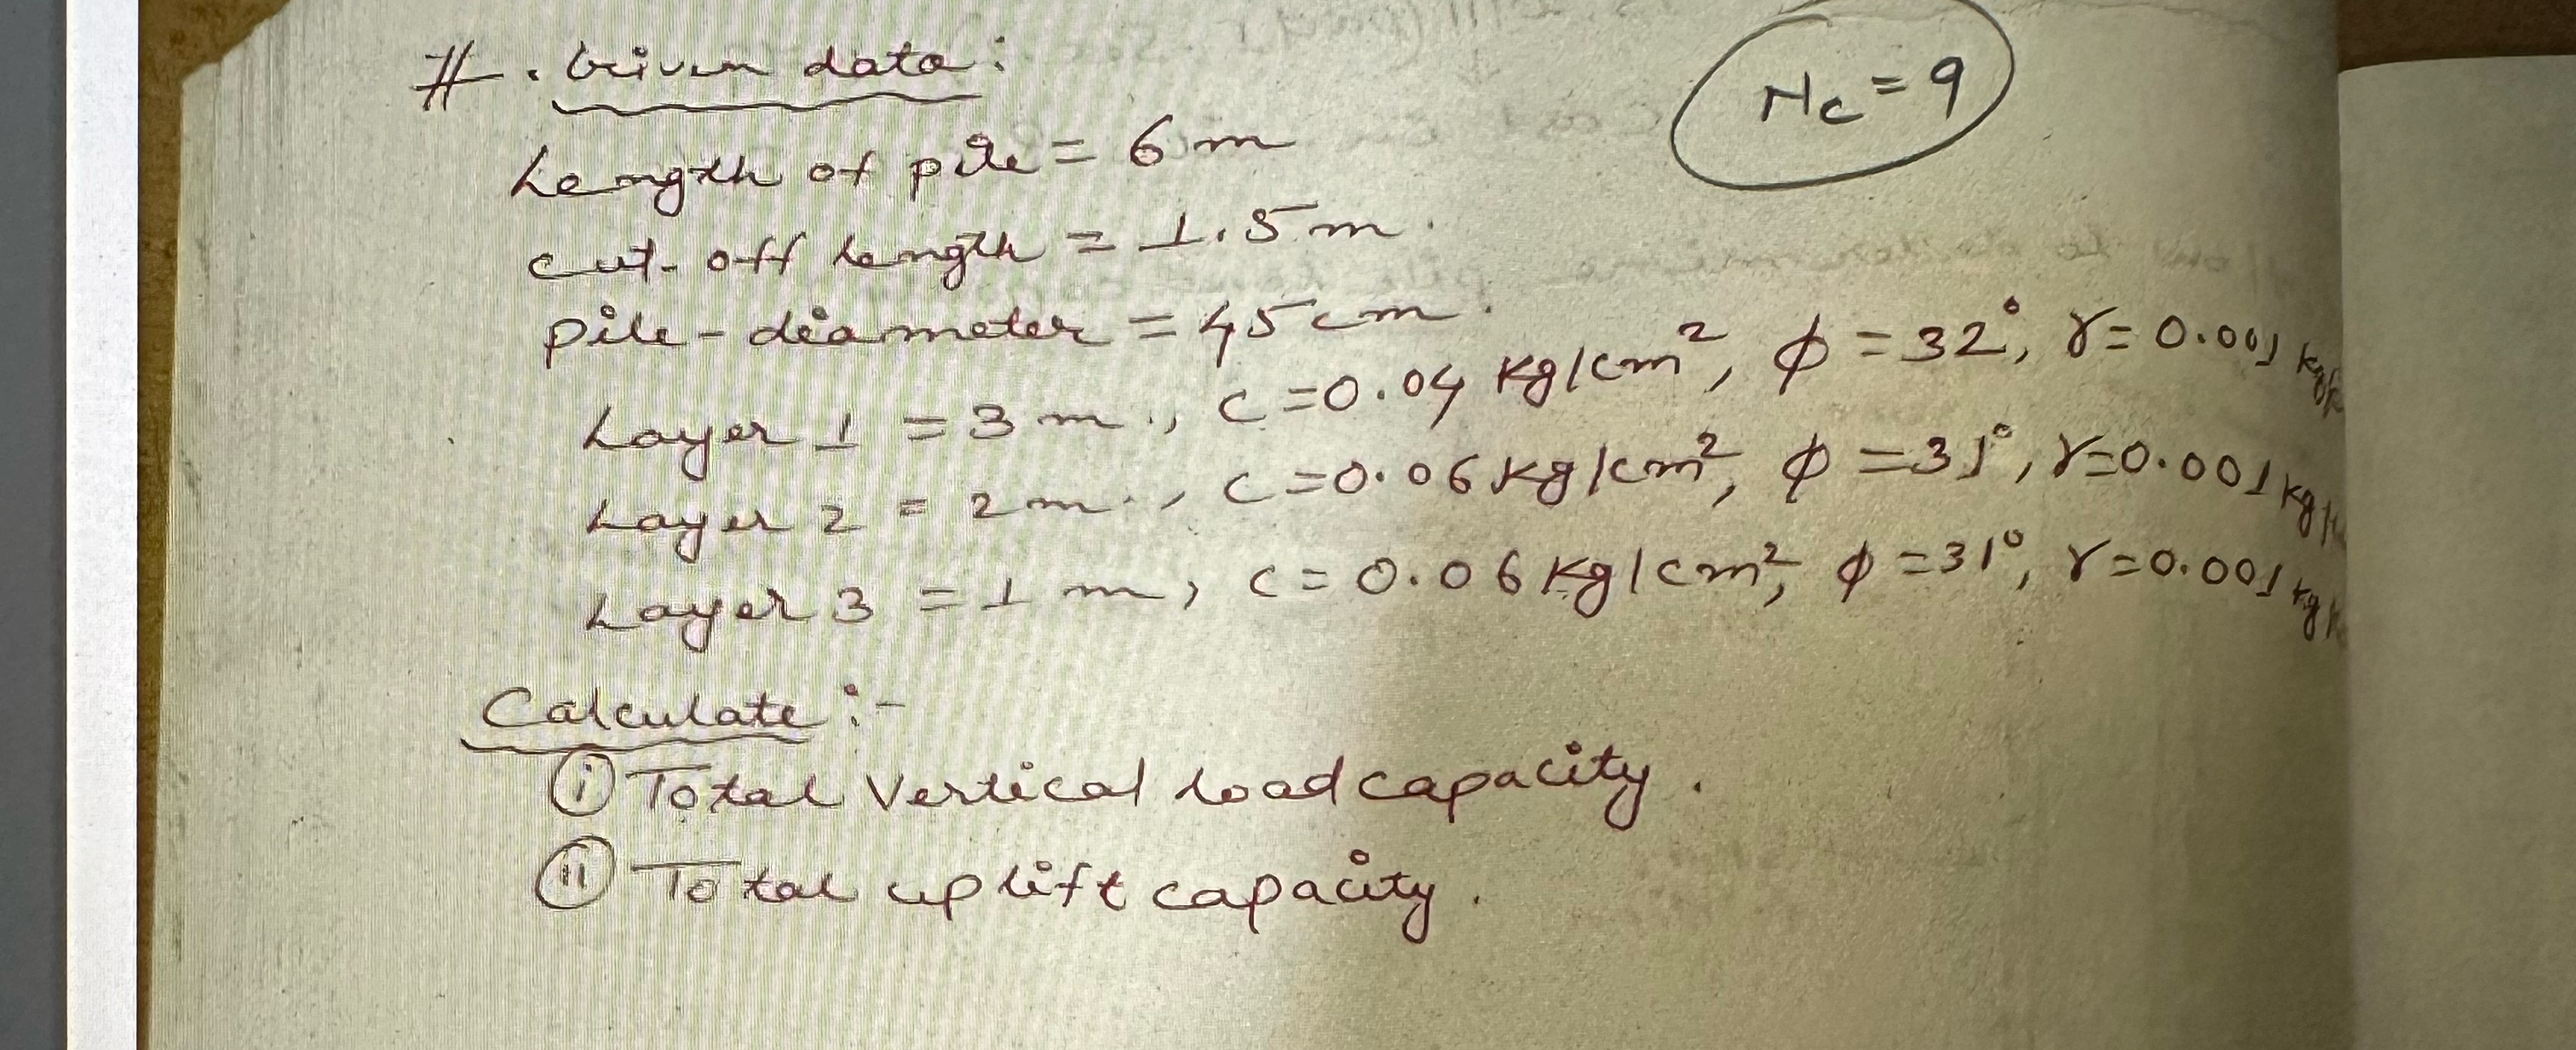 #. Given data:
Nc = 9
Length of pile = 6 m
cut-off length = 1.5 m.
pile-diameter = 45 cm.
Layer 1 = 3 m., c = 0.04 kg/cm², ϕ = 32°, γ = 0.001
Layer 2 = 2 m., c = 0.06 kg/cm², ϕ = 31°, γ = 0.001
Layer 3 = 1 m, c = 0.06 kg/cm², ϕ = 31°, γ = 0.001
Calculate :-
(i) Total Vertical load capacity.
(ii) Total uplift capacity.